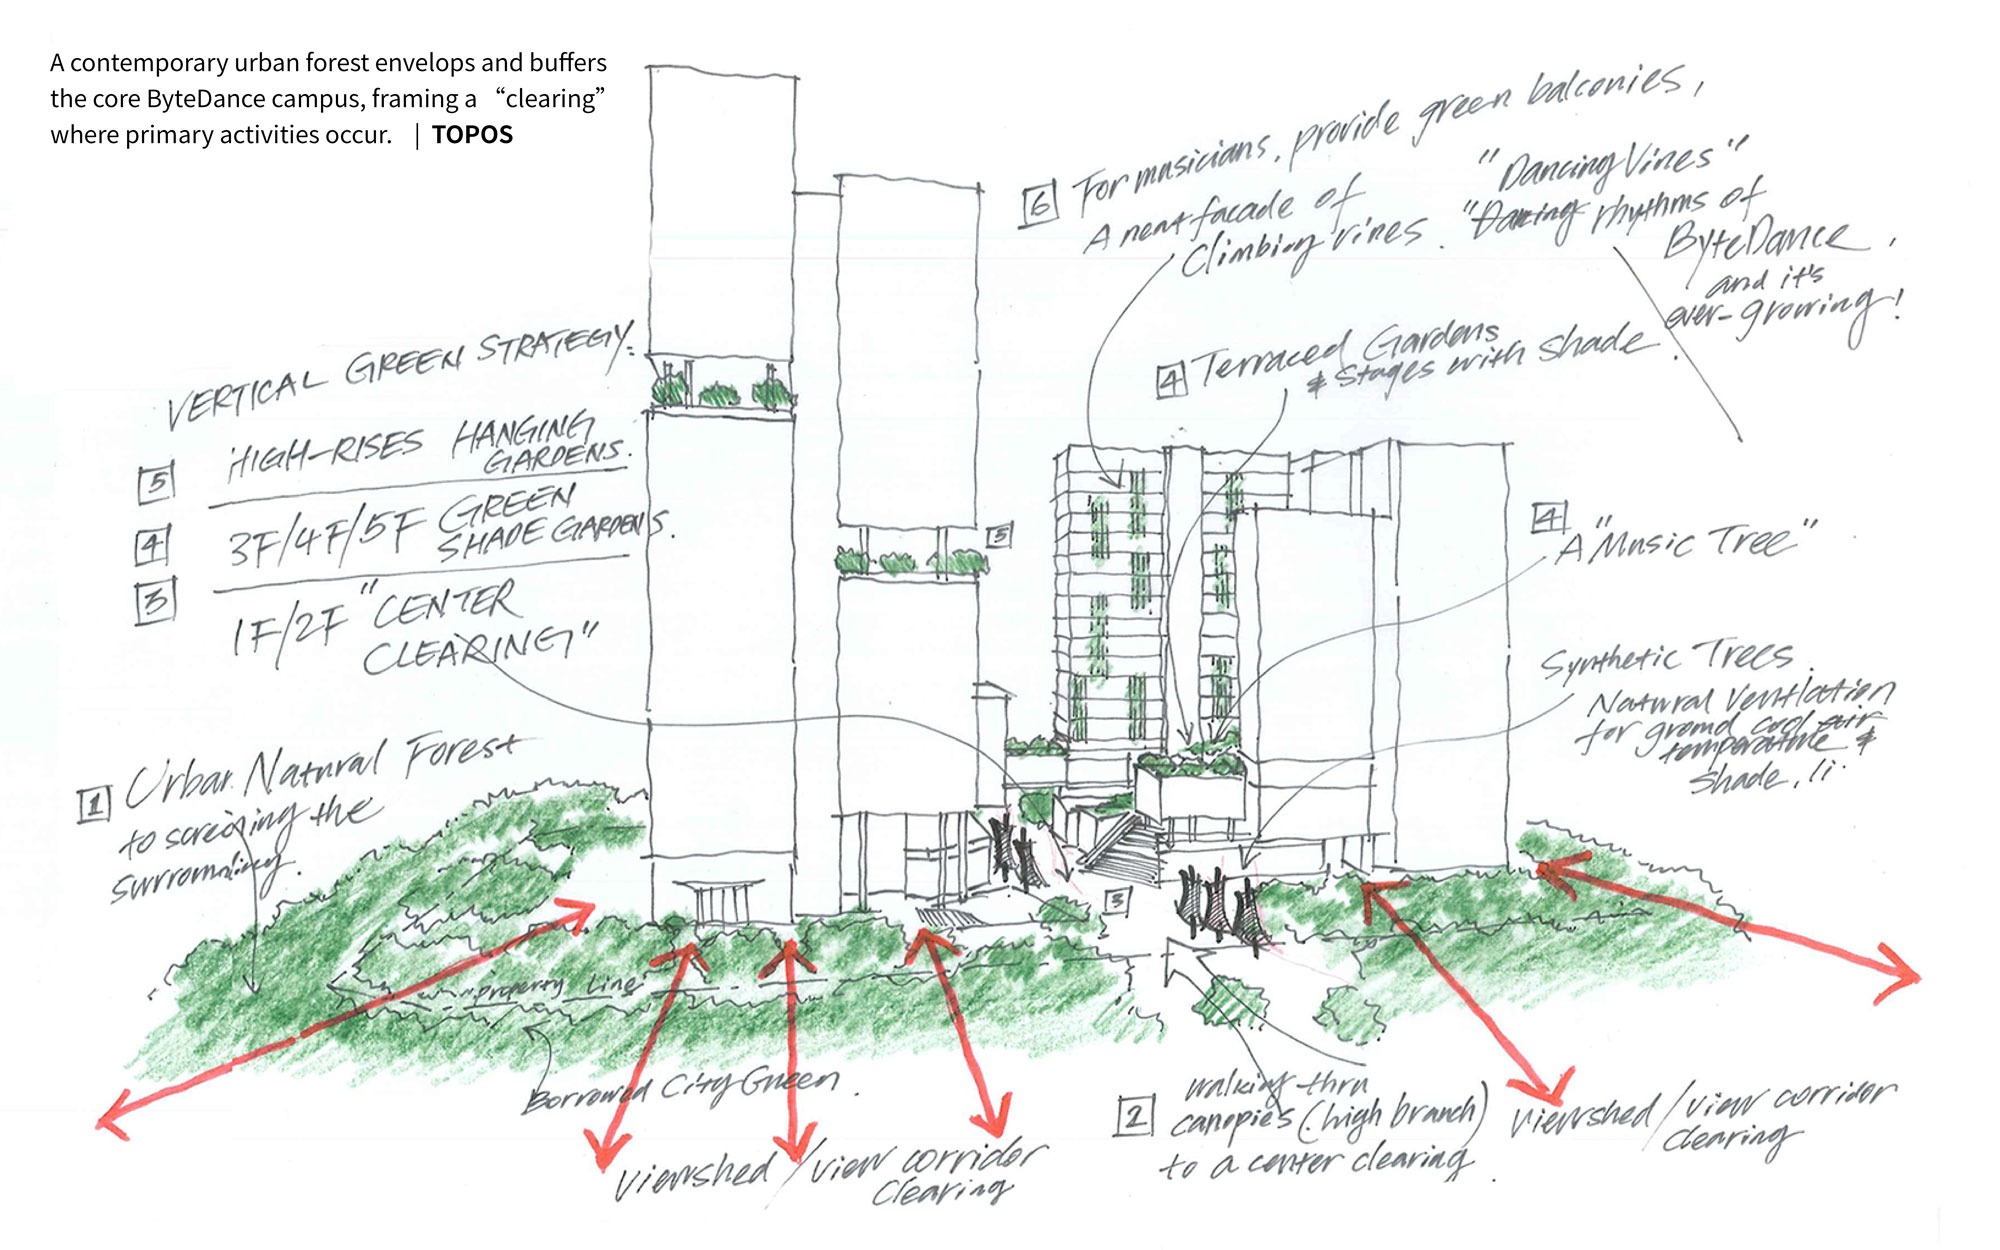 A contemporary urban forest envelops and buffers
the core ByteDance campus, framing a “clearing”
where primary activities occur. | TOPOS
6 For musicians, provide green balconies,
A neat facade of
Climbing vines.
"Dancing Vines"
"Dancing rhythms of
ByteDance,
and it's
ever-growing!
4 Terraced Gardens
& Stages with shade.
VERTICAL GREEN STRATEGY:
5 HIGH-RISES HANGING
GARDENS.
4 3F/4F/5F GREEN
SHADE GARDENS.
3 1F/2F "CENTER
CLEARING"
5
4 A "Music Tree"
Synthetic Trees.
Natural Ventilation
for ground cool air
temperature &
shade.
1 Urban Natural Forest
to screening the
surrounding.
3
property Line
Borrowed City Green.
Viewshed / view corridor
Clearing
2 walking thru
canopies (high branch)
to a center clearing.
Viewshed / view corridor
Clearing